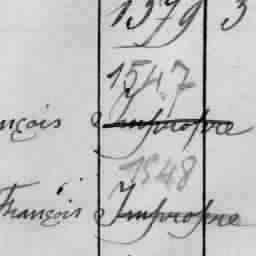 1379 3
1547
nçois Impropre
1548
François Impropre